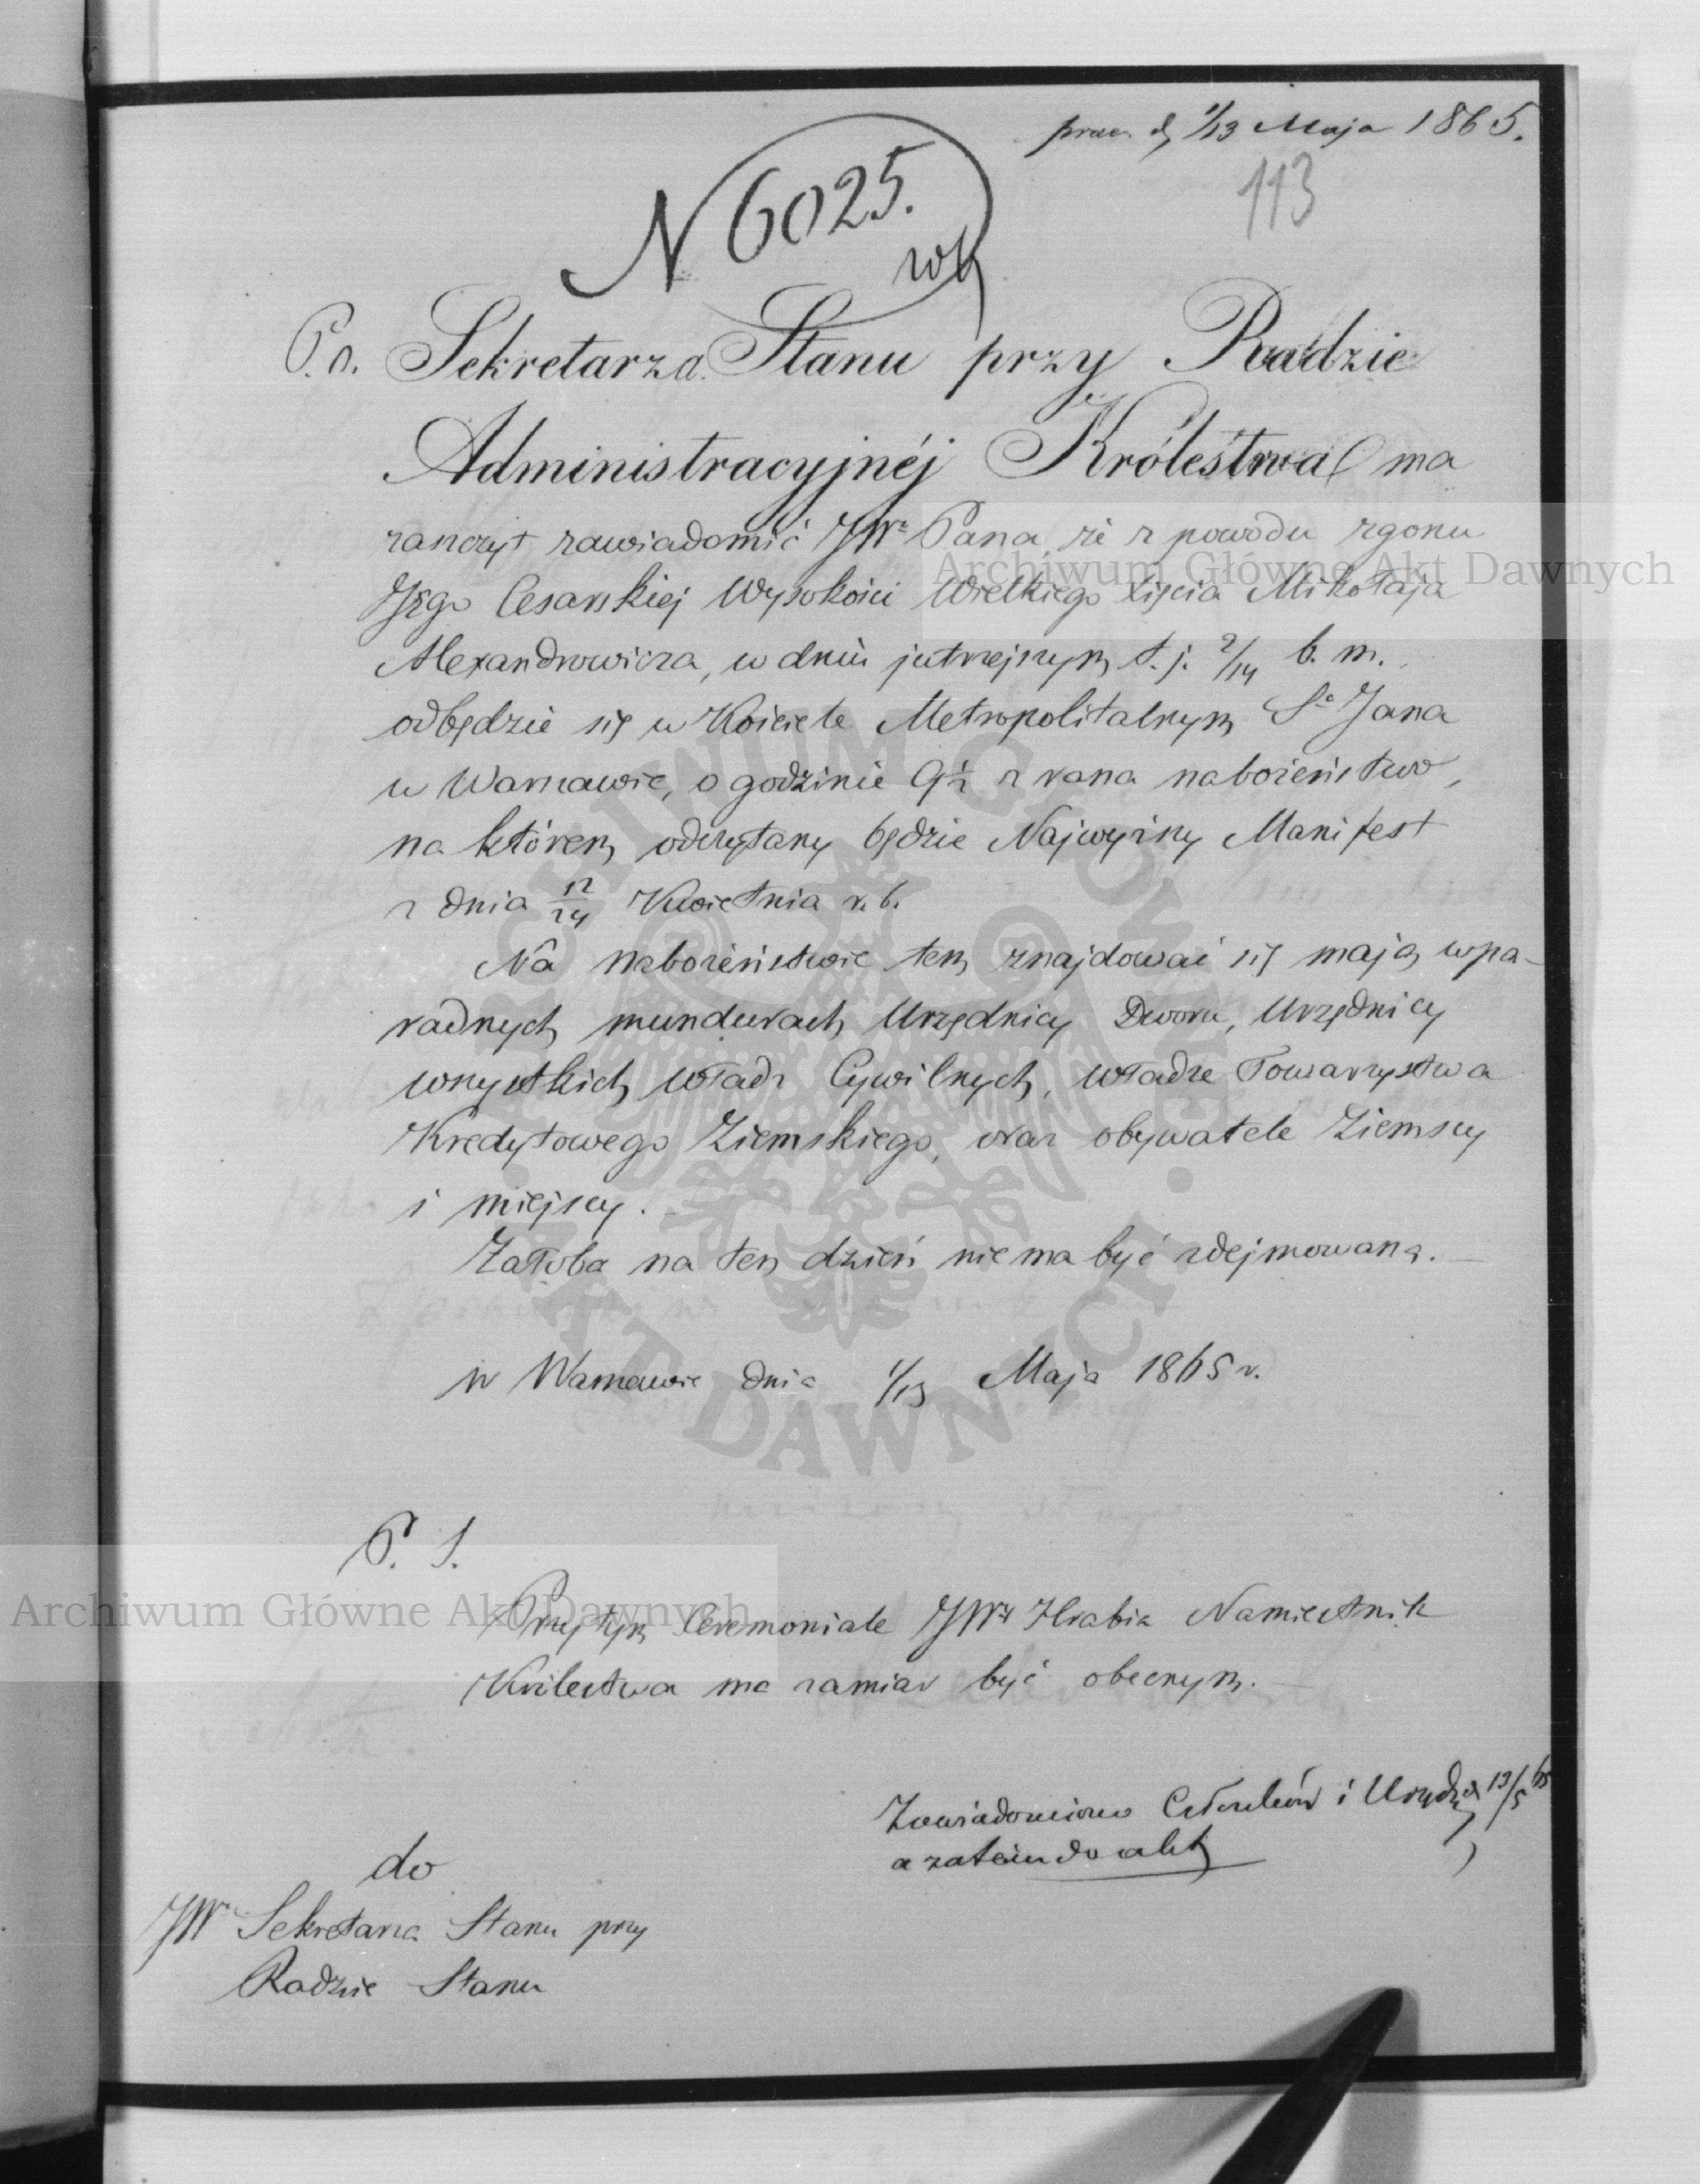 praes. d. 1/13 Maja 1865.
113
N 6025.
P.o. Sekretarza Stanu przy Radzie
Administracyjnéj Królestwa ma
zaszczyt zawiadomić JWº Pana, że z powodu zgonu
Jego Cesarskiej Wysokości Wielkiego Xięcia Mikołaja
Alexandrowicza, w dniu jutrzejszym t. j. 2/14 b. m.
odbędzie się w Kościele Metropolitalnym Sº Jana
w Warszawie, o godzinie 9½ z rana nabożeństwo,
na którem odczytany będzie Najwyższy Manifest
z dnia 12/24 Kwietnia r. b.
Na nabożeństwie tem znajdować się mają w pa-
radnych mundurach Urzędnicy Dworu, Urzędnicy
wszystkich władz Cywilnych, władze Towarzystwa
Kredytowego Ziemskiego, oraz obywatele Ziemscy
i miejscy.
Żałoba na ten dzień nie ma być zdejmowaną.
w Warszawie dnia 1/13 Maja 1865 r.
P. S.
Przy tym Ceremoniale JWy Hrabia Namiestnik
Królestwa ma zamiar być obecnym.
Zawiadomiono Członków i Urzędn. 13/5 65
a zatem do akt
do
JWº Sekretarza Stanu przy
Radzie Stanu
Archiwum Główne Akt Dawnych
Archiwum Główne Akt Dawnych
ARCHIWUM GŁÓWNE AKT DAWNYCH